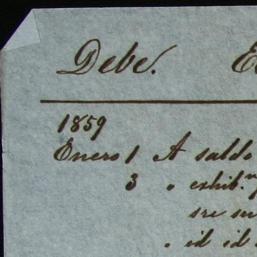 Debe.
1859
Enero 1 A saldo
3 " exhib.n
id id